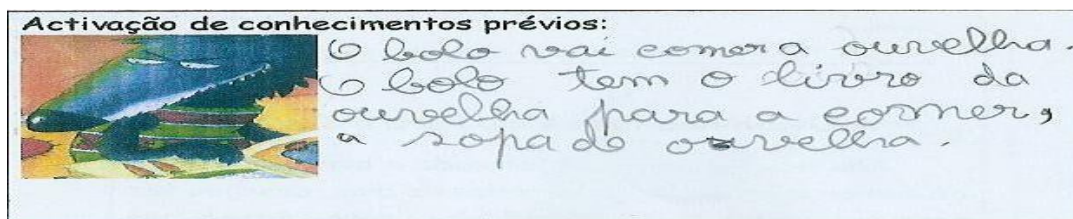 Activação de conhecimentos prévios:
O bolo vai comer a ouvelha.
O bolo tem o livro da
ouvelha para a comer,
a sopa de ouvelha.